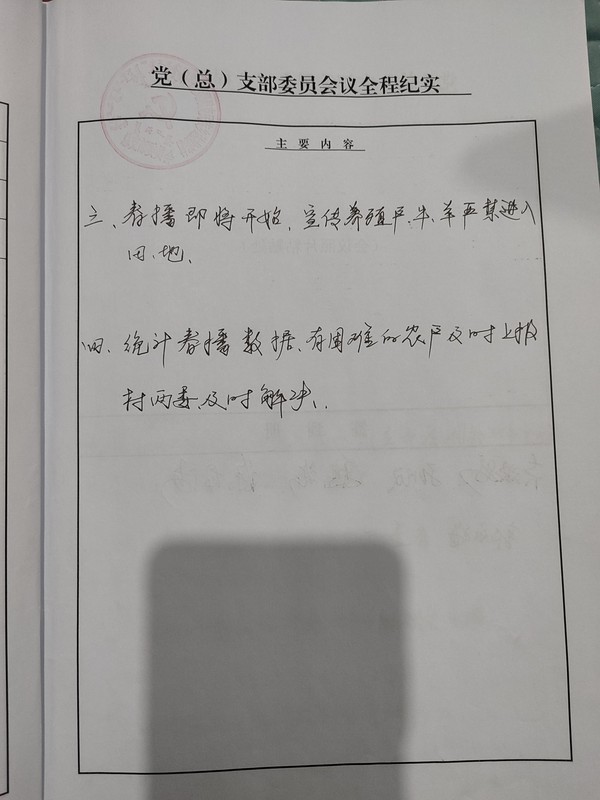 党（总）支部委员会议全程纪实
主 要 内 容
三、春播即将开始、宣传养殖户、牛、羊严禁进入
田、地、
四、统计春播数据、有困难的农户及时上报
村两委、及时解决、